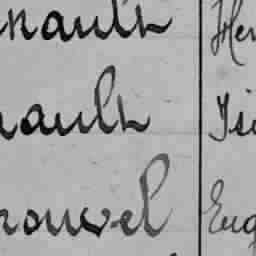 nault Hen
nault Isi
rouvel Eug